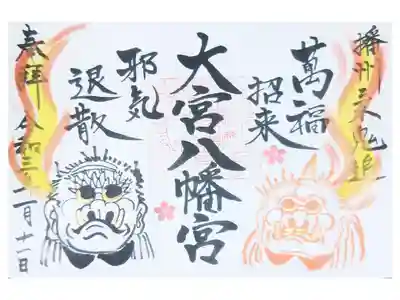 播州三大鬼追
萬福
招来
大宮八幡宮
邪気
退散
奉拝 令和三年二月十一日